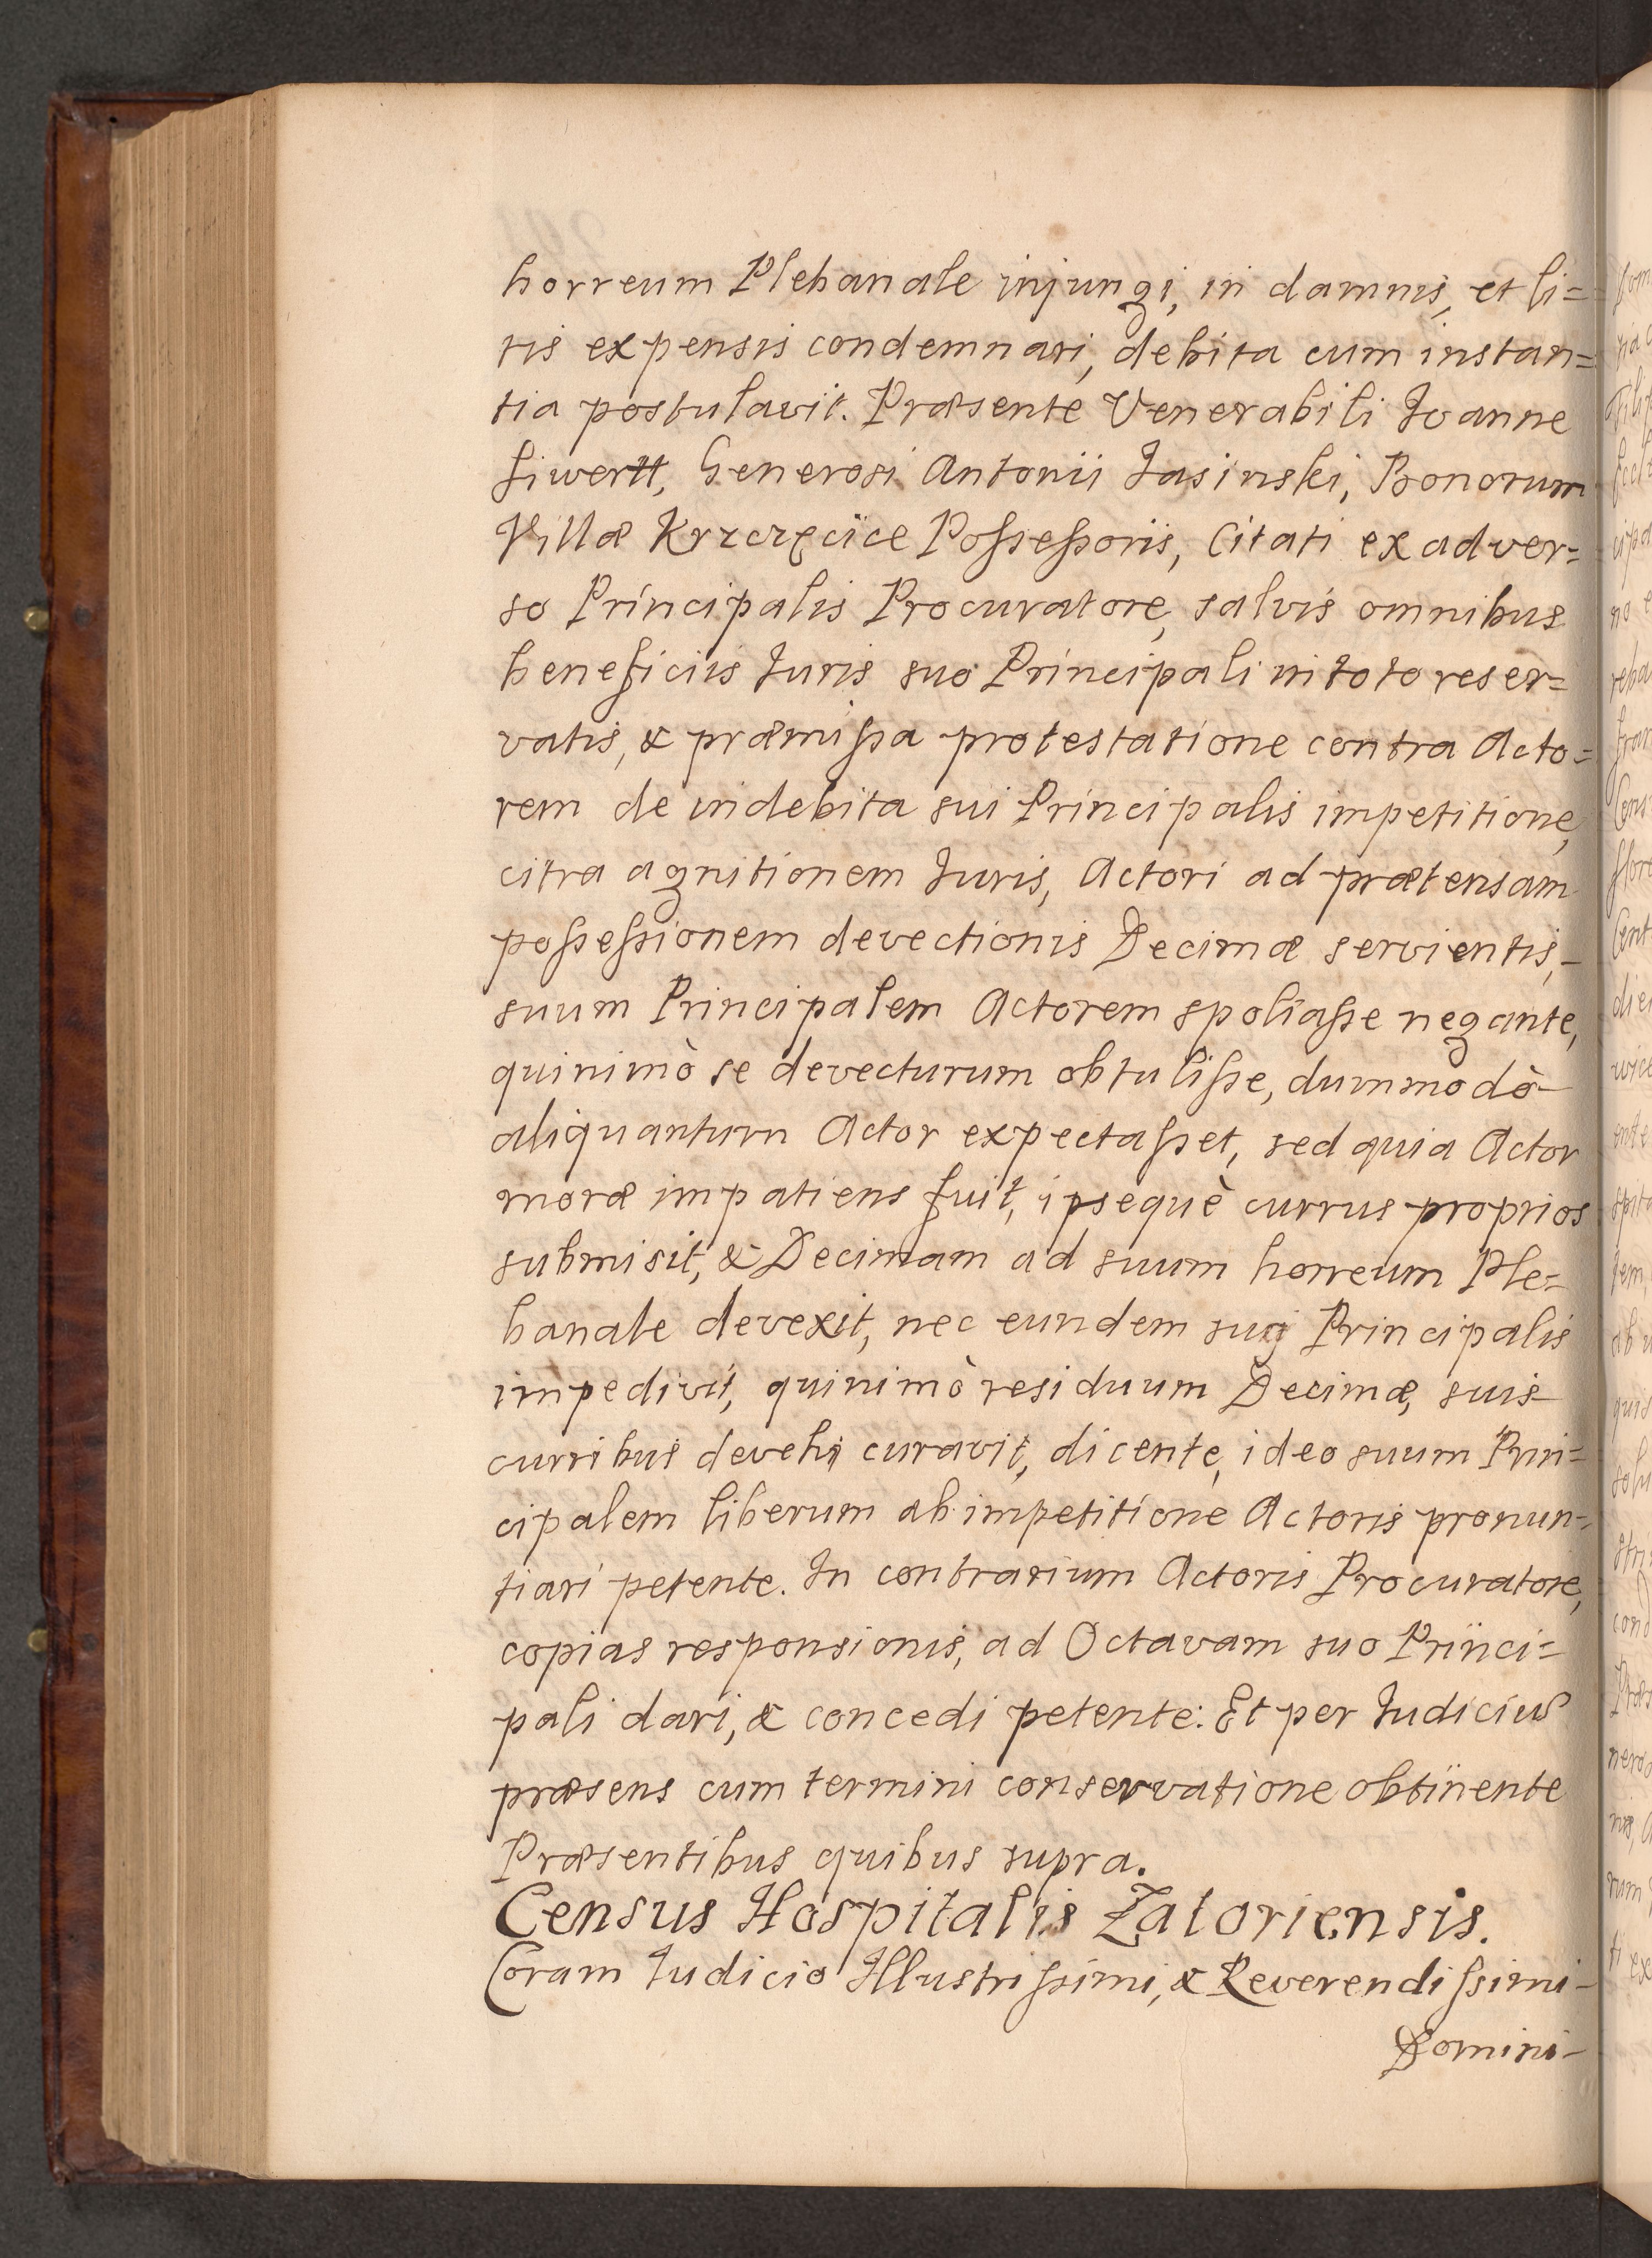 horreum Plebanale injungi, in damnis, et li=
tis expensis condemnari, debita cum instan=
tia postulavit. Præsente Venerabili Joanne
Siwertt, Generosi Antonii Jasinski, Bonorum
Villæ Possessoris, Citati ex adver=
so Principalis Procuratore, salvis omnibus
beneficiis Juris suo Principali in toto reser=
vatis, & præmissa protestatione contra Acto=
rem de indebita sui Principalis impetitione,
citra agnitionem Juris, Actori ad prætensam
possessionem devectionis Decimæ servientis,
suum Principalem Actorem spoliasse negante,
quinimò se devecturum obtulisse, dummodò
aliquantum Actor expectasset, sed quia Actor
moræ impatiens fuit, ipsequè currus proprios
submisit, & Decimam ad suum horreum Ple=
banale devexit, nec eundem suj Principalis
impedivit, quinimò residuum Decimæ, suis
curribus devehi curavit, dicente, ideo suum Prin=
cipalem liberum ab impetitione Actoris pronun=
tiari petente. In contrarium Actoris Procuratore,
copias responsionis, ad Octavam suo Princi=
pali dari, & concedi petente. Et per Judicium
præsens cum termini conservatione obtinente
Præsentibus quibus supra.
Census Hospitalis Zatoriensis.
Coram Judicio Illustrissimi, & Reverendissimi
Domini